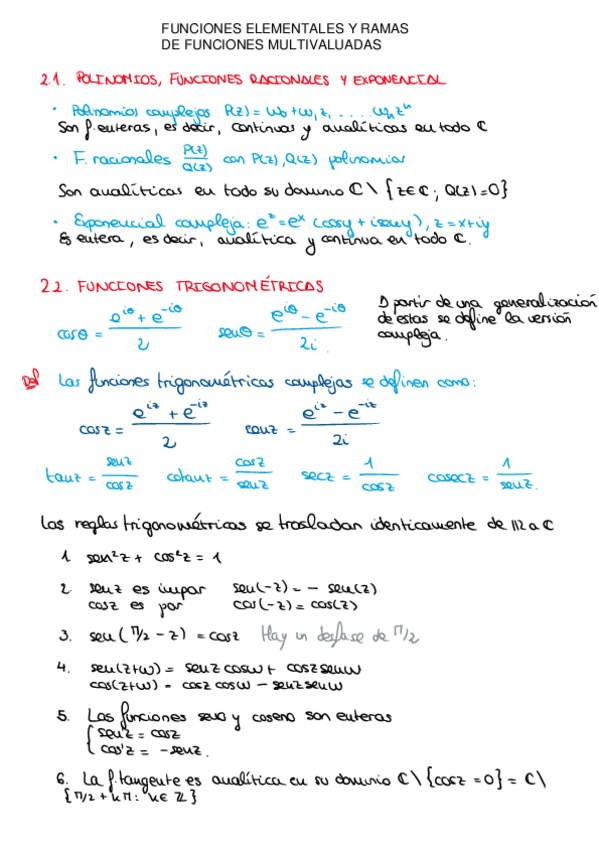 FUNCIONES ELEMENTALES Y RAMAS
DE FUNCIONES MULTIVALUADAS
2.1. POLINOMIOS, FUNCIONES RACIONALES Y EXPONENCIAL
· Polinomios complejos P(z) = w₀ + w₁z, . . . . wₙzⁿ
Son f. enteras, es decir, continuas y analíticas en todo ℂ
· F. racionales P(z)/Q(z) con P(z), Q(z) polinomios
Son analíticas en todo su dominio ℂ \ {z∈ℂ; Q(z)=0}
· Exponencial compleja: e^z = e^x (cosy + iseny), z = x+iy
Es entera, es decir, analítica y continua en todo ℂ.
2.2. FUNCIONES TRIGONOMÉTRICAS
cosθ = (e^{iθ} + e^{-iθ})/2 senθ = (e^{iθ} - e^{-iθ})/2i
A partir de una generalización
de estas se define la versión
compleja.
Def Las funciones trigonométricas complejas se definen como:
cosz = (e^{iz} + e^{-iz})/2 senz = (e^{iz} - e^{-iz})/2i
tanz = senz/cosz cotanz = cosz/senz secz = 1/cosz cosecz = 1/senz.
Las reglas trigonométricas se trasladan identicamente de ℝ a ℂ
1. sen²z + cos²z = 1
2. senz es impar sen(-z) = - sen(z)
cosz es par cos(-z) = cos(z)
3. sen(π/2 - z) = cosz Hay un desfase de π/2
4. sen(z+w) = senz cosw + cosz senw
cos(z+w) = cosz cosw - senz senw
5. Las funciones seno y coseno son enteras
{ sen'z = cosz
cos'z = -senz.
6. La f. tangente es analítica en su dominio ℂ \ {cosz = 0} = ℂ \
{π/2 + kπ : k∈ℤ}